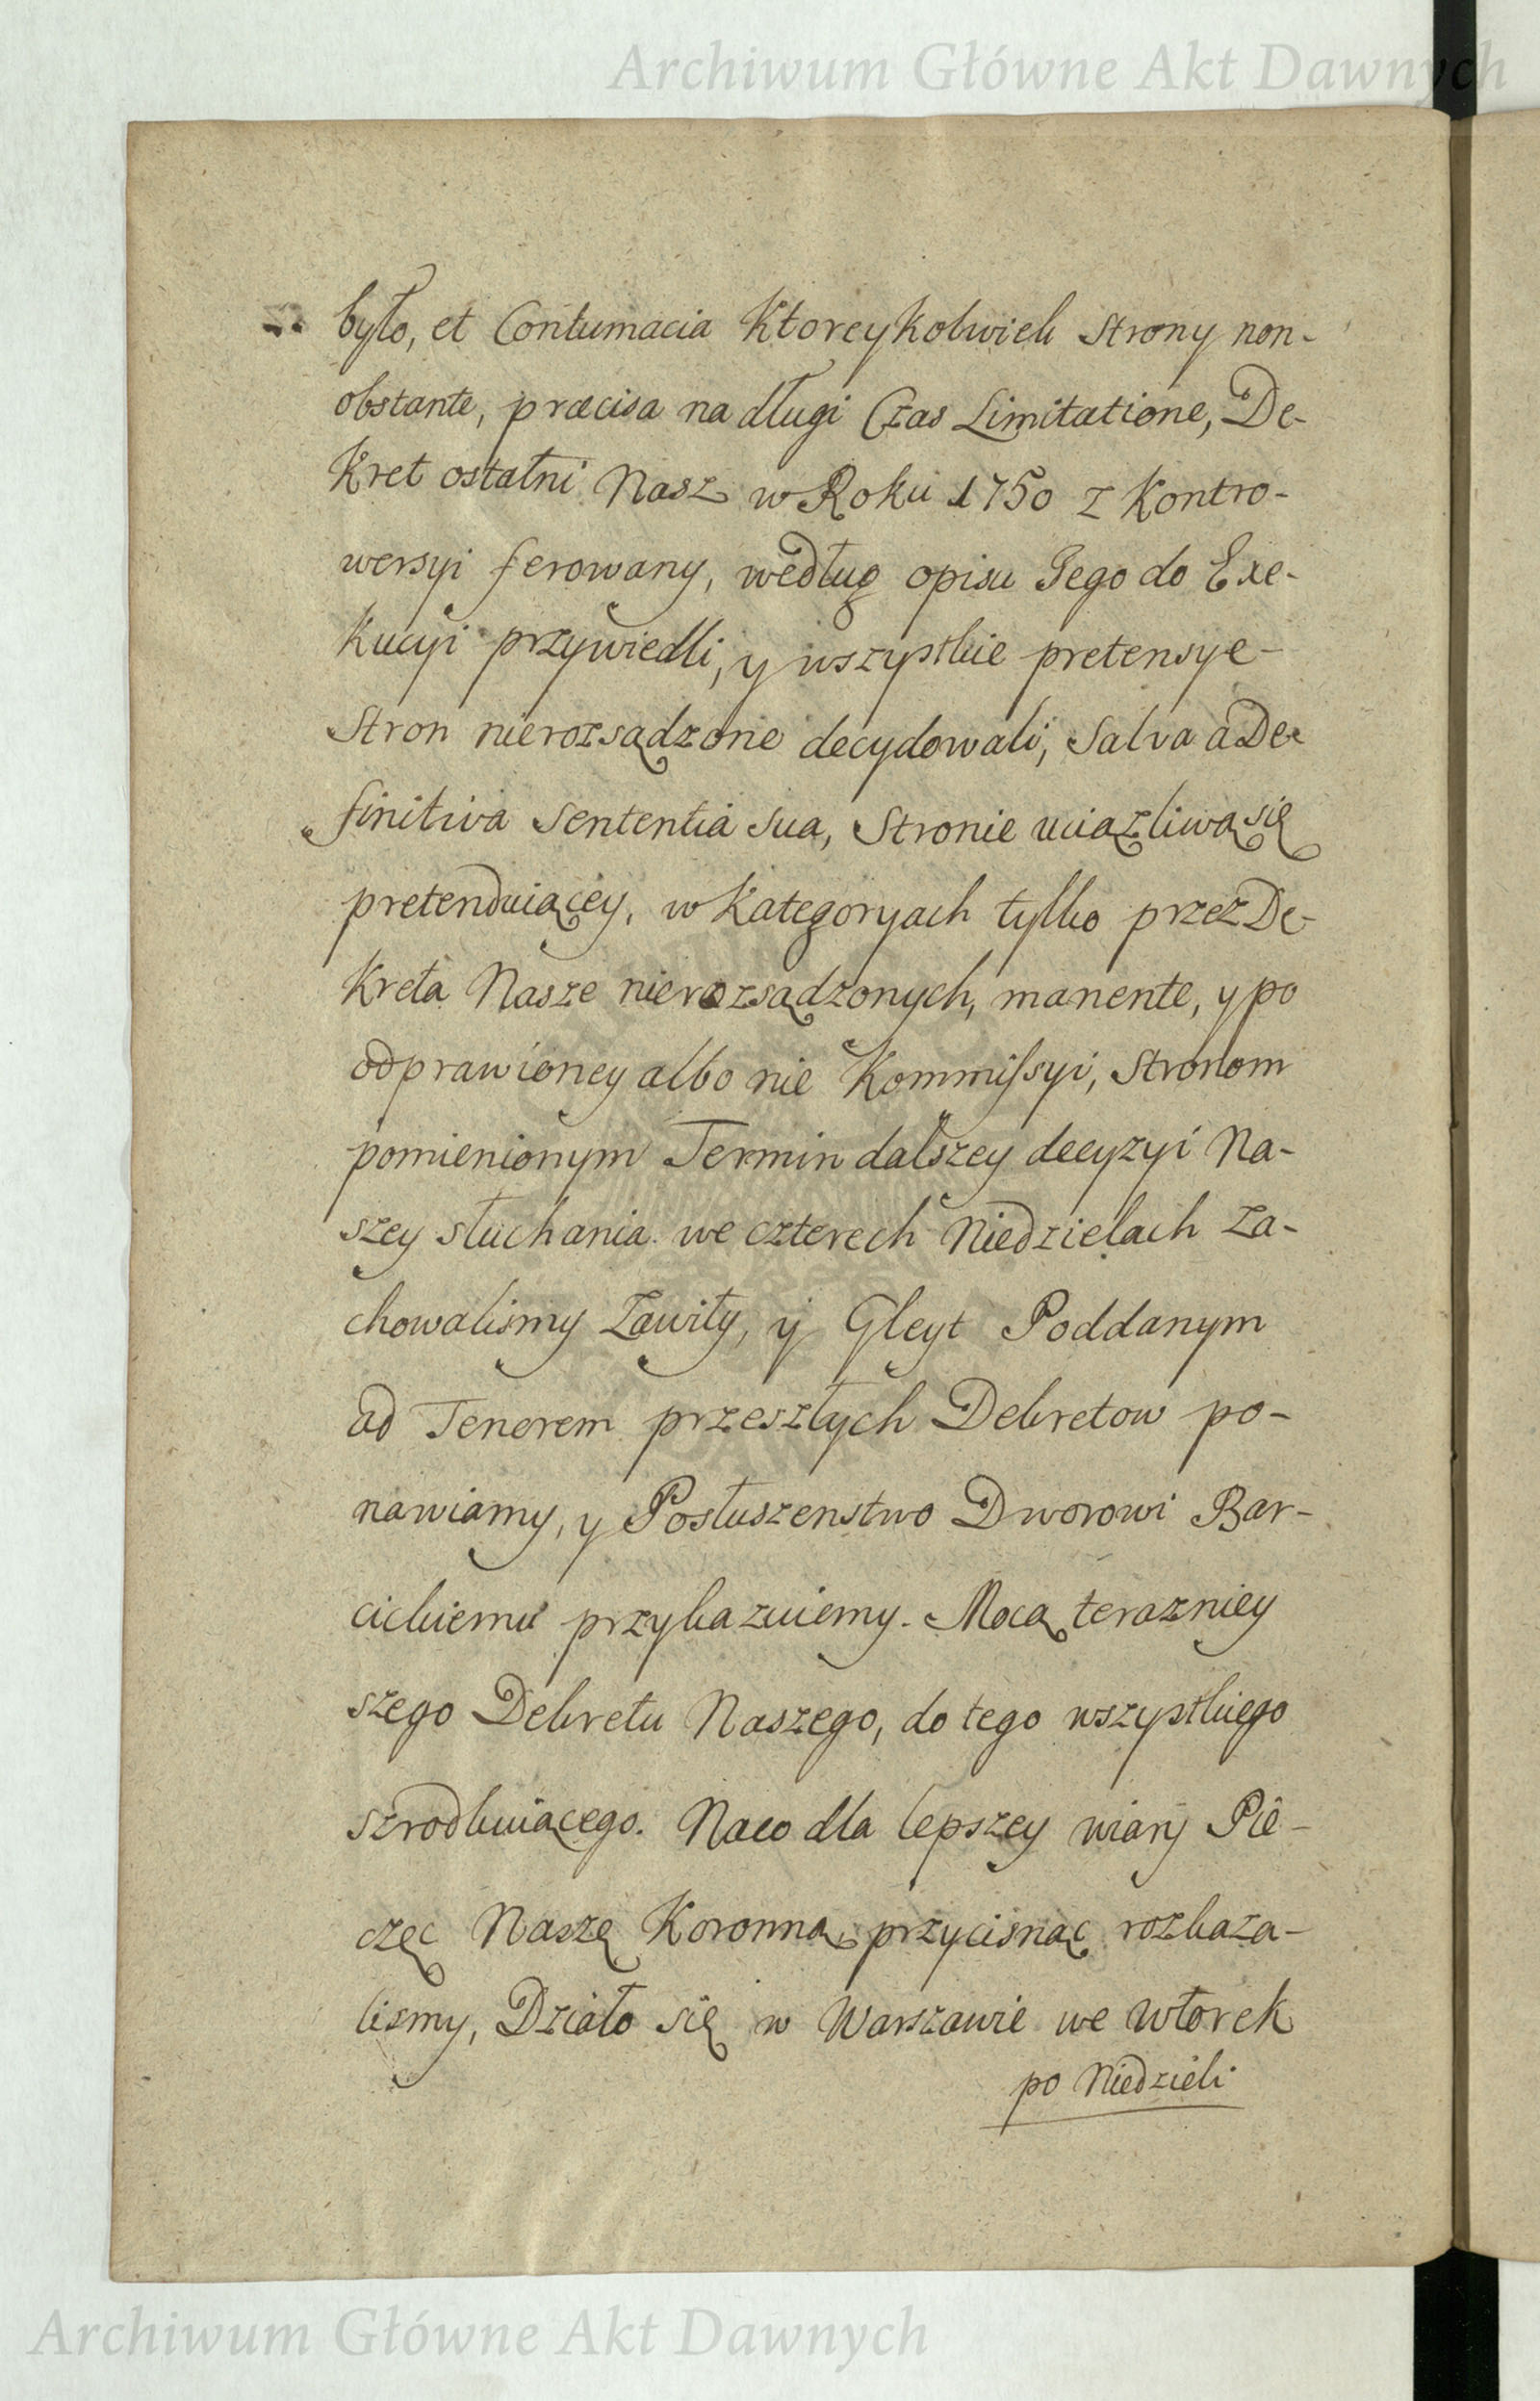 Archiwum Główne Akt Dawnych
było, et Contumacia Ktoreykolwiek Strony non-
obstante, præcisa na długi Czas Limitatione, De-
kret ostatni Nasz w Roku 1750 z Kontro-
wersyi ferowany, według opisu Jego do Exe-
kucyi przywiedli, y wszystkie pretensye
Stron nierozsądzone decydowali, Salva a De-
finitiva Sententia Sua, Stronie uciązliwą się
pretenduiącey, w Kategoryach tylko przez De-
kreta Nasze nierozsądzonych, manente, y po
odprawioney albo nie Kommissyi, Stronom
pomienionym Termin dalszey decyzyi Na-
szey słuchania we czterech Niedzielach za-
chowalismy Zawity, y Gleyt Poddanym
ad Tenorem przeszłych Dekretow po-
nawiamy, y Posłuszenstwo Dworowi Bar-
cickiemu przykazuiemy. Mocą terazniey
szego Dekretu Naszego, do tego wszystkiego
szrodkuiącego. Naco dla lepszey wiary Pie-
częc Naszę Koronną przycisnąc rozkaza-
lismy, Działo się w Warszawie we Wtorek
po Niedzieli
Archiwum Główne Akt Dawnych